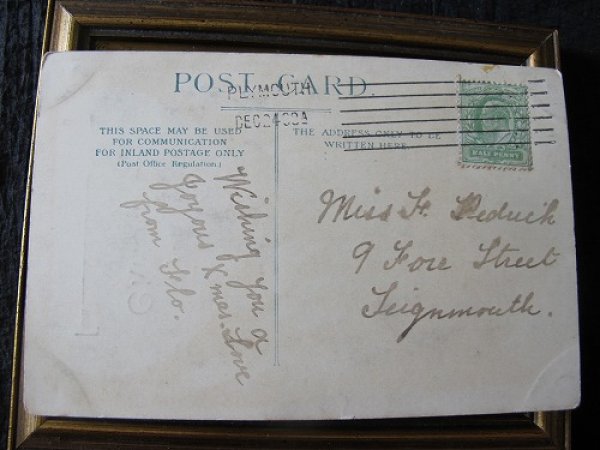 POST CARD.
PLYMOUTH
DEC 24
THIS SPACE MAY BE USED
FOR COMMUNICATION
FOR INLAND POSTAGE ONLY
(Post Office Regulation.)
THE ADDRESS ONLY TO BE
WRITTEN HERE.
HALF PENNY
Wishing you a
Joyous Xmas. Love
from Flo.
Miss
9 Fore Street
Teignmouth.